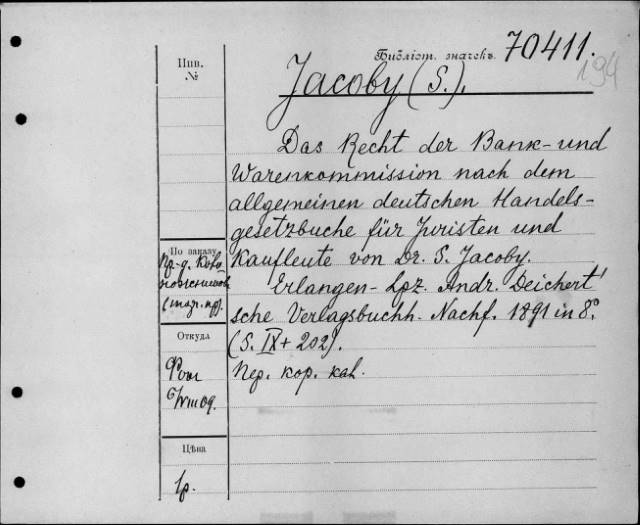 Библіот. значекъ. 70411.
194
Инв.
№
Jacoby (S.).
Das Recht der Bank- und
Warenkommission nach dem
allgemeinen deutschen Handels-
gesetzbuche für Juristen und
Kaufleute von Dr. S. Jacoby.
Erlangen - Lpz. Andr. Deichert'
sche Verlagsbuchh. Nachf. 1891 in 8°.
(S. IX + 202).
Пер. кор. кал.
По заказу
Пр-д.
Откуда
6/VIII 09.
Цѣна
1р.